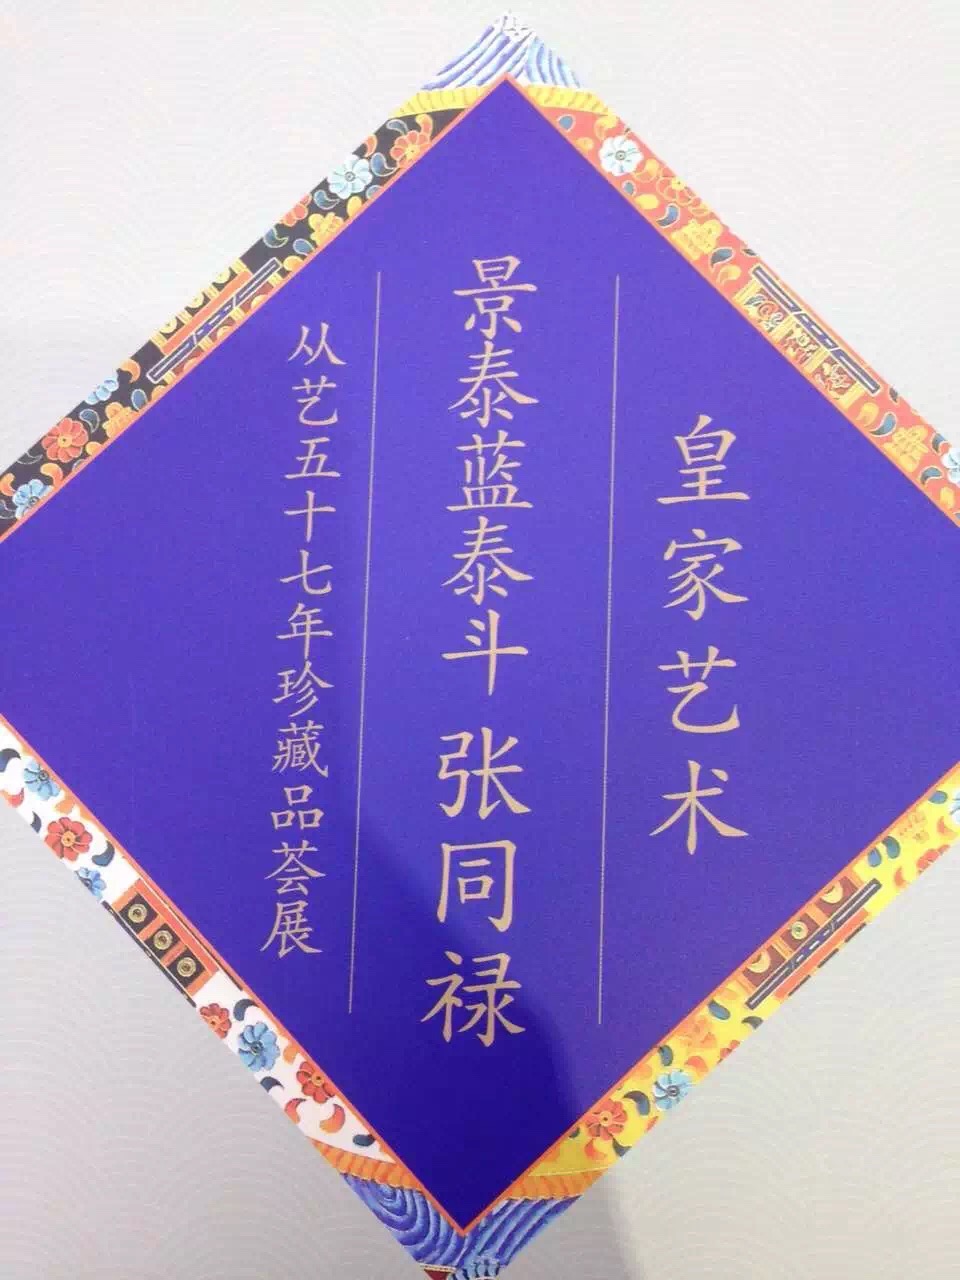 皇家艺术
景泰蓝泰斗 张同禄
从艺五十七年珍藏品荟展